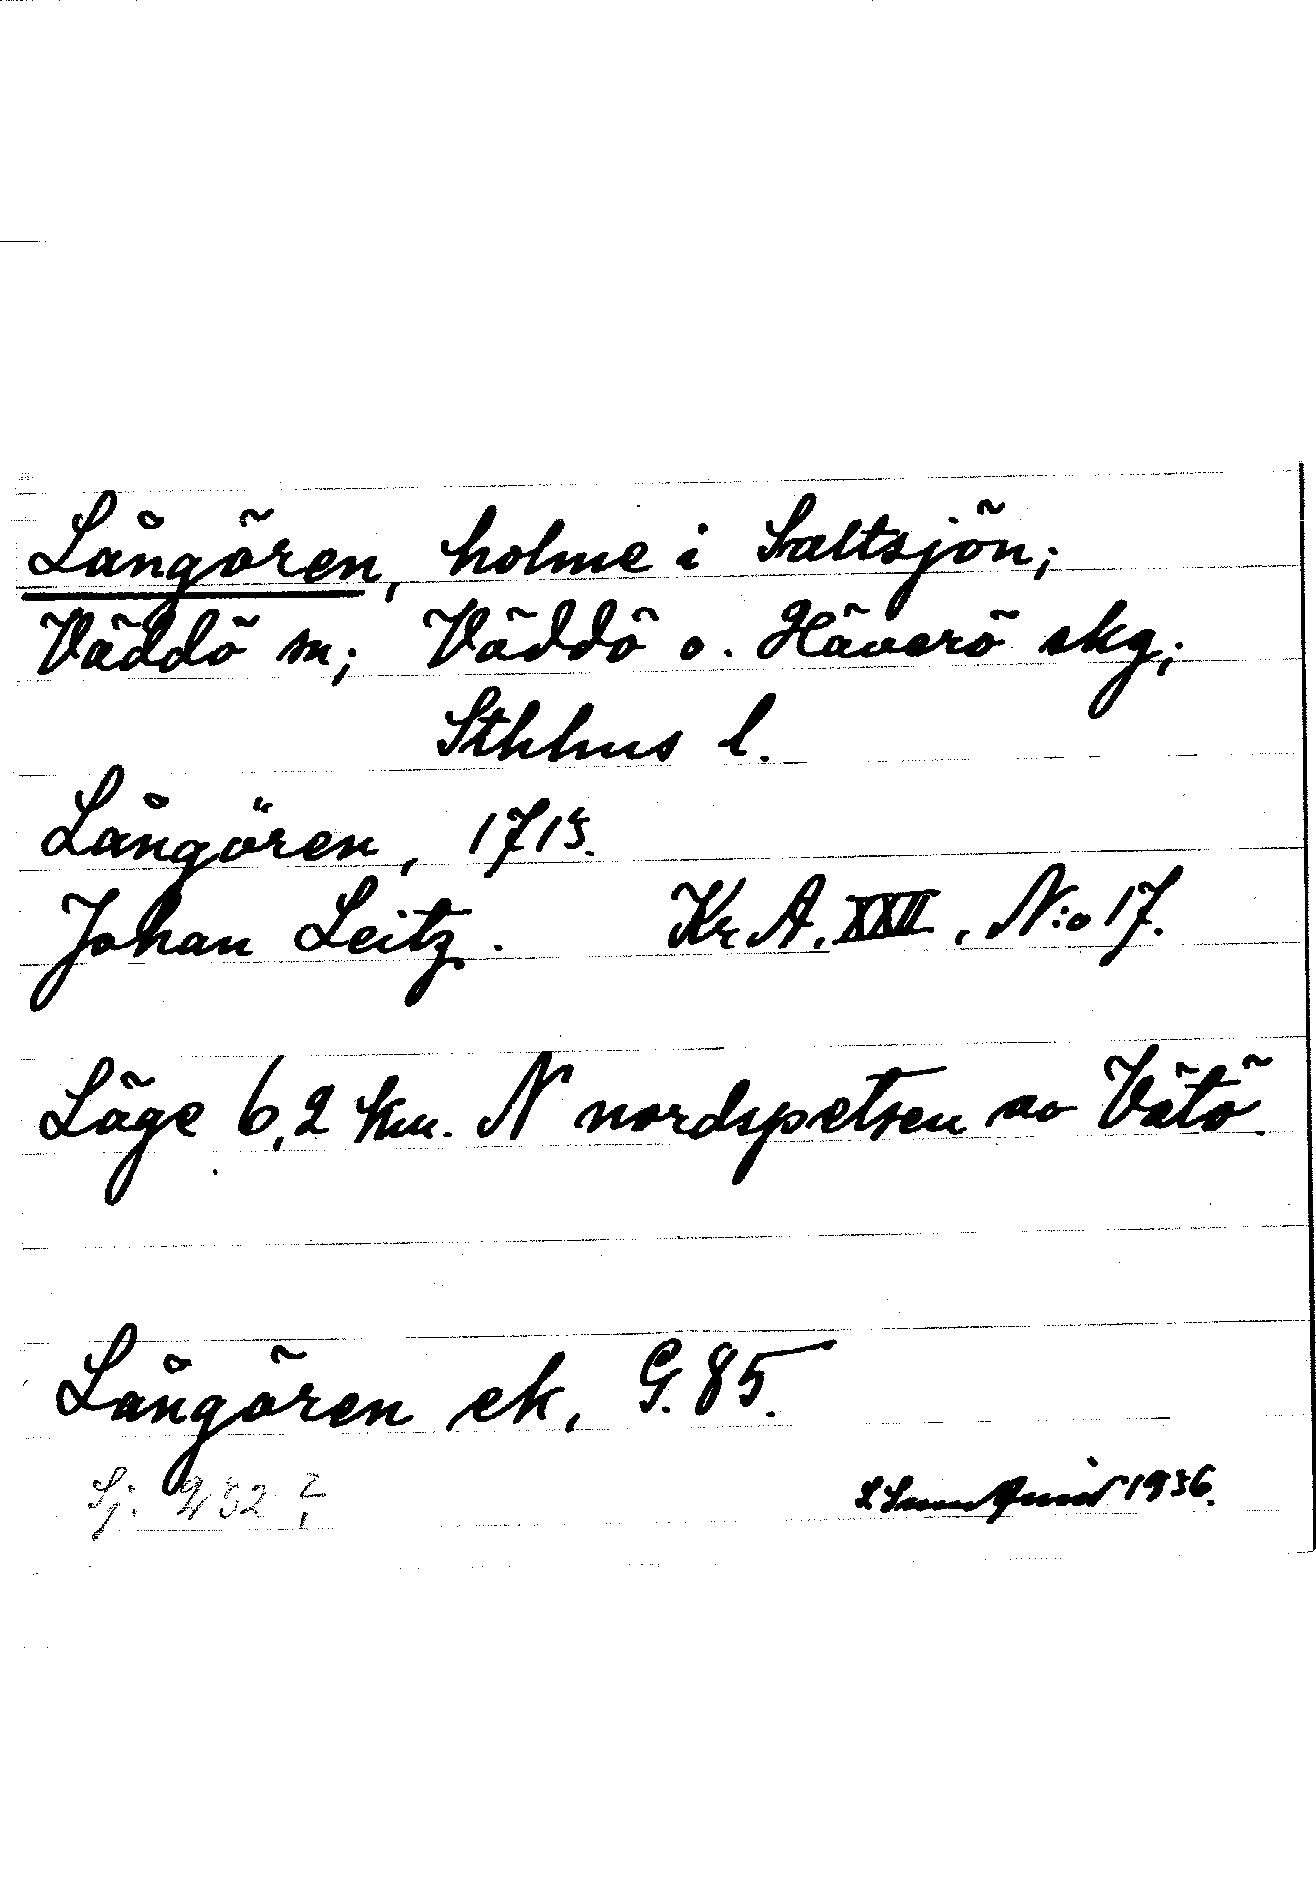 Långören, holme i Saltsjön;
Väddö sn; Väddö o. Häverö skg;
Sthlms l.
Långören, 1715.
Johan Leitz. Kr A. XXII, N:o 17.
Läge 6,2 km. N nordspetsen av Vätö.
Långören ek. G. 85.
Sj. 232 ?
1936.